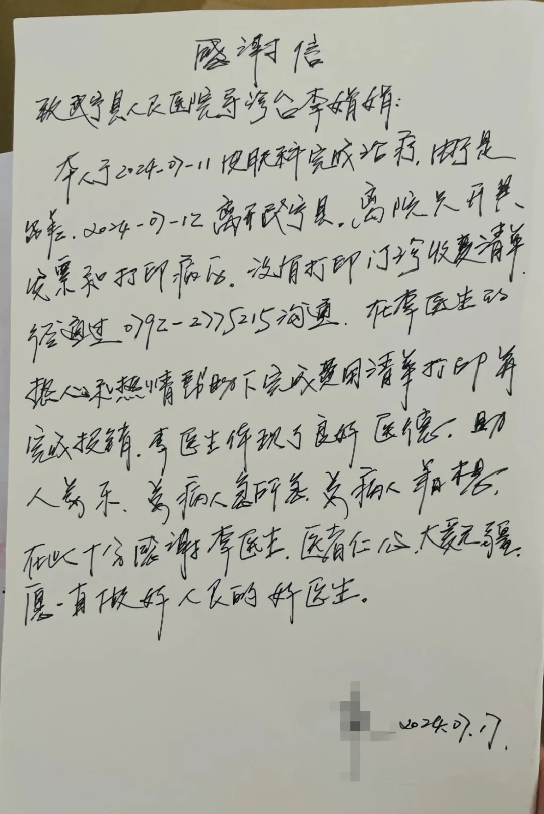 感谢信
致武宁县人民医院导诊台李娟娟:
本人于2024-07-11皮肤科完成治疗,由于是
出差,2024-07-12离开武宁县。离院只开具
发票和打印病历。没有打印门诊收费清单
经通过0792-2775215沟通,在李医生的
热心和热情帮助下完成费用清单打印并
完成报销,李医生体现了良好医德,助
人为乐,为病人急所急,为病人着想,
在此十分感谢李医生,医者仁心,大爱无疆,
愿一直做好人民的好医生。
2024.07.17.